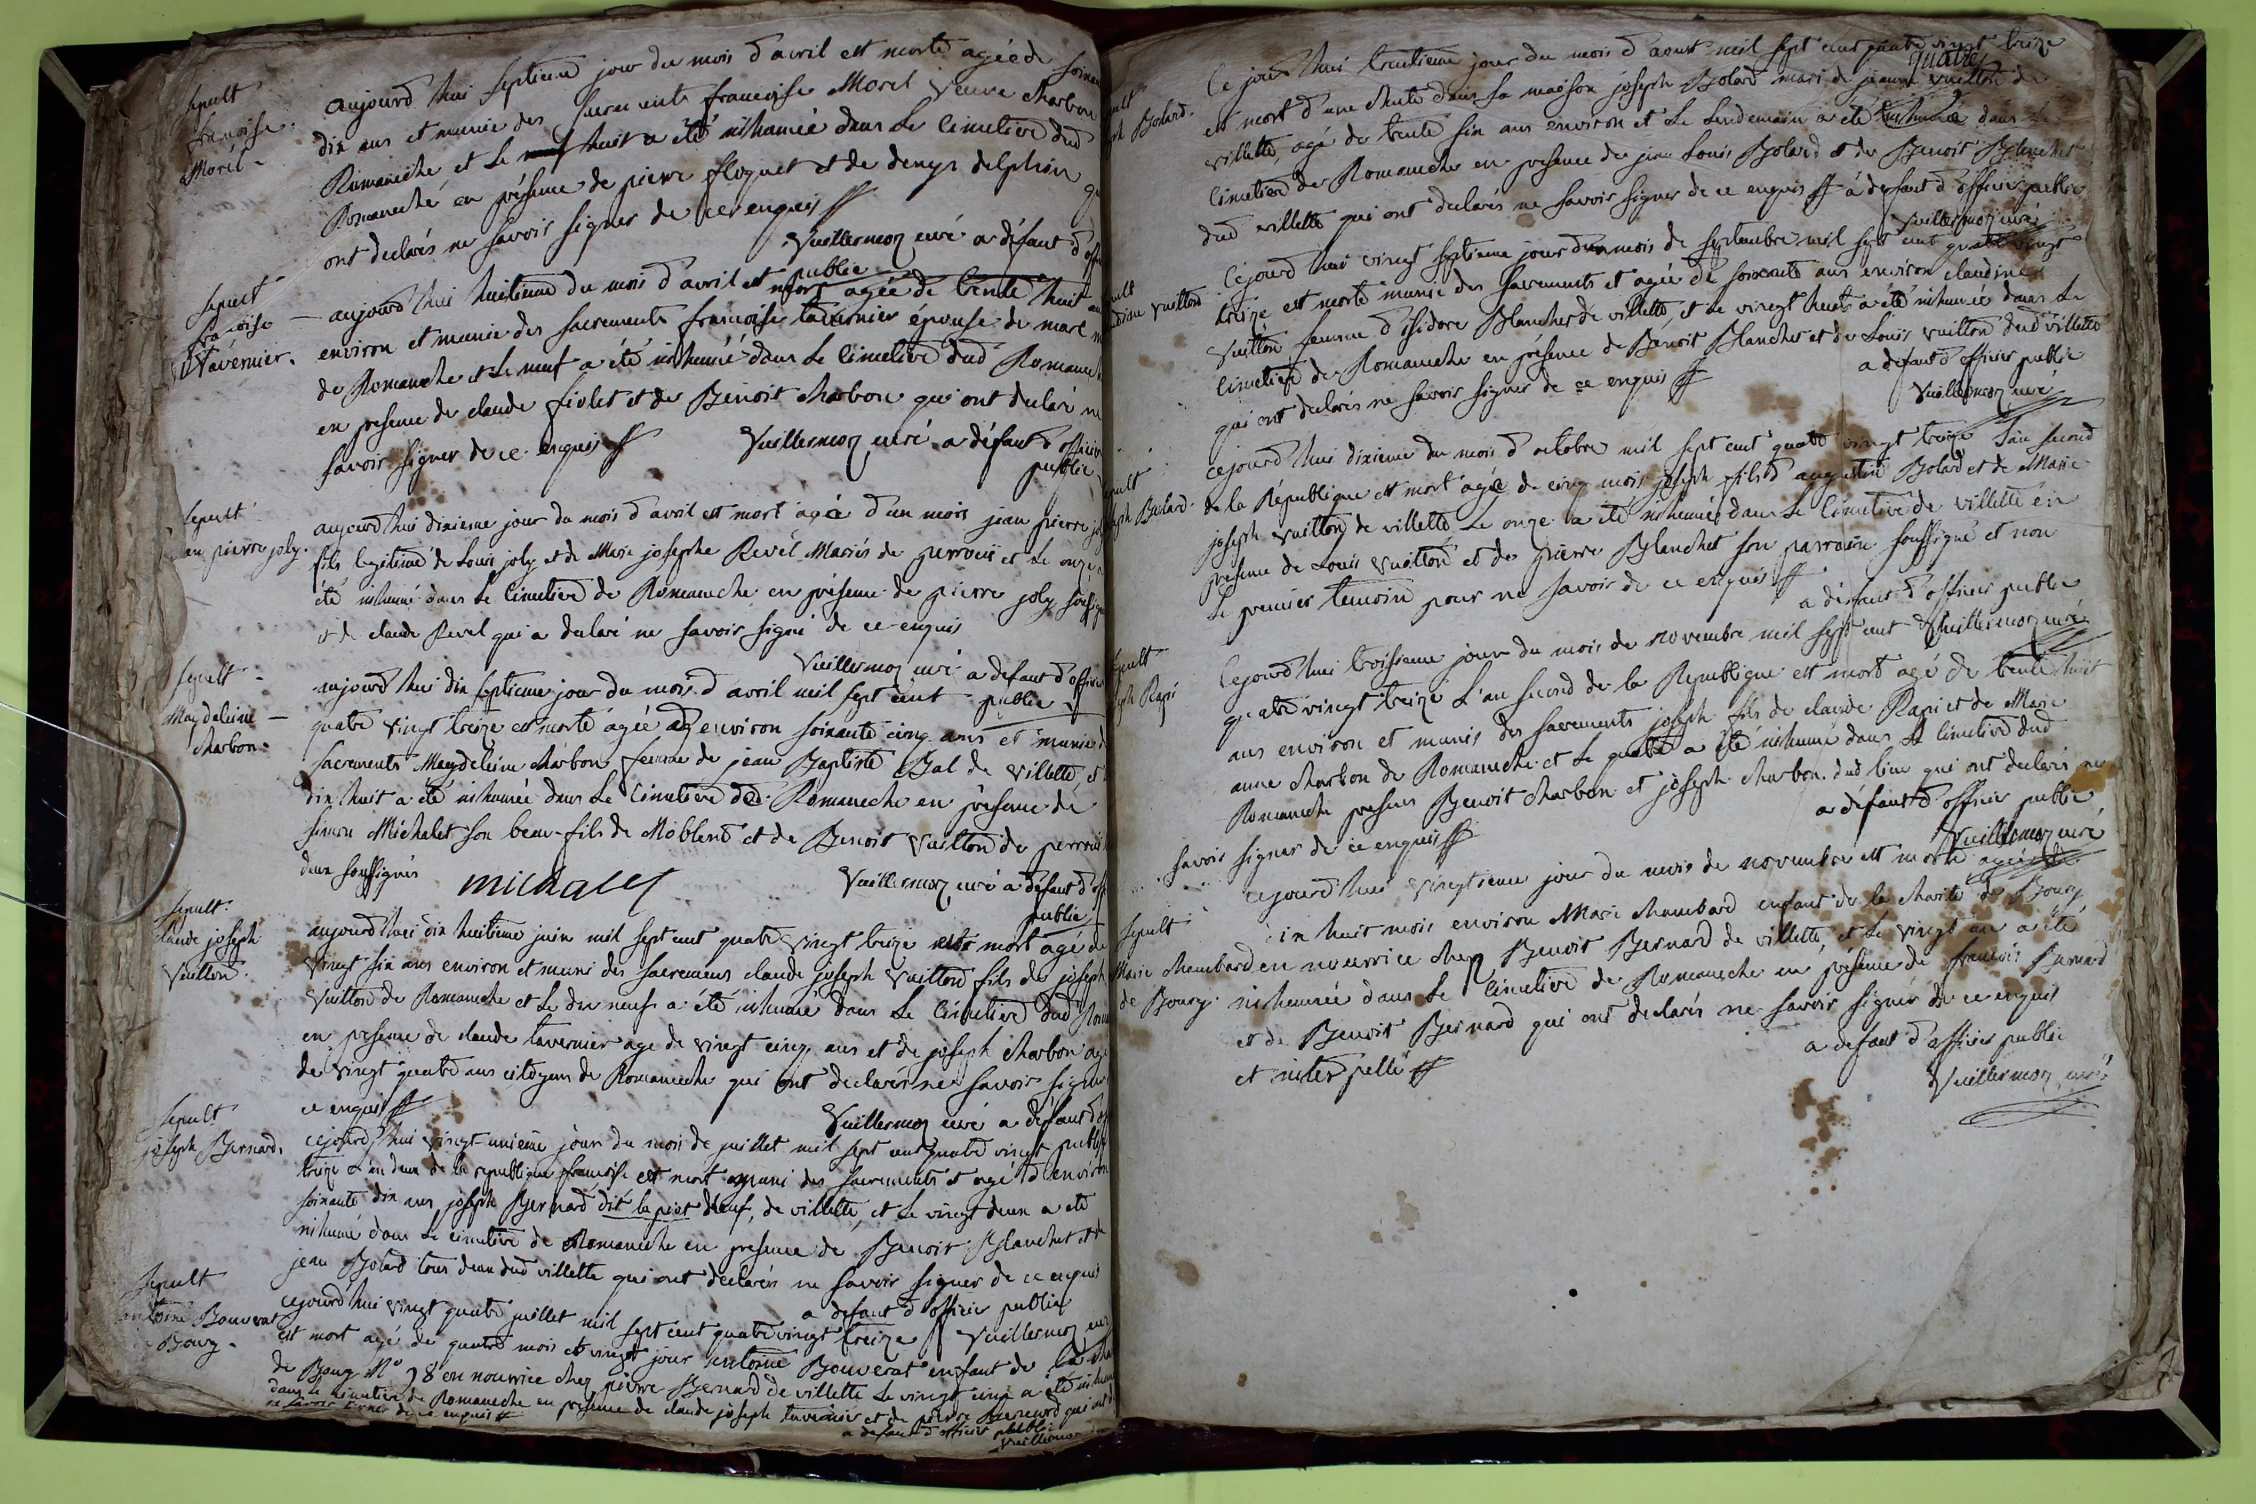 Sepult
françoise
Morel
aujourd'hui septieme jour du mois d'avril est morte agée de soixan
dix ans et munie des sacrements françoise Morel veuve charbon
Romaneche et le huit a été inhumée dans le cimetiere dud
Romaneche en présence de pierre floquet et de denys delphin
ont declarés ne savoir signer de ce enquis
Vuillermoz curé a défaut d'offi
public
Sepult
Tavernier.
aujourd'hui huitieme du mois d'avril est mort agée de trente huit
environ et munie des sacrements françoise tavernier epouse de marc
de Romaneche et le neuf a été inhumé dans le cimetiere dud Romanech
en presence de claude fiolet et de Benoit charbon qui ont declaré ne
savoir signer de ce enquis Vuillermoz curé a défaut d'officier
public
Sepult
jean pierre joly.
aujourd'hui dixieme jour du mois d'avril est mort agée d'un mois jean pierre joly
fils legitime de Louis joly et de Marie josephe Revel Mariés de perrouis et le onze
été inhumé dans le cimetiere de Romaneche en présence de pierre joly
et de claude Revel qui a declaré ne savoir signé de ce enquis
Vuillermoz curé a defaut d'officier
public
Sepult
Magdeleine
charbon
aujourd'hui dix septieme jour du mois d'avril mil sept cent
quatre vingt treize est morte agée d'environ soixante cinq ans et munie
sacrements Magdeleine charbon femme de jean Baptiste Bal de villette et
dix huit a été inhumée dans le cimetiere de Romaneche en présence de
simon Michalet son beau-fils de Moblens et de Benoit vuitton de perrouis
deux soussignés michalet Vuillermoz curé a defaut d'off
public
Sepult
claude joseph
Vuitton
aujourd'hui dix huitieme juin mil sept cent quatre vingt treize est mort agé de
vingt six ans environ et muni des sacremens claude joseph vuitton fils de joseph
Vuitton de Romaneche et le dix neuf a été inhumé dans le cimetiere dud Rom
en presence de claude tavernier age de vingt cinq ans et de joseph charbon age
de vingt quatre ans citoyens de Romaneche qui ont declarés ne savoir signer
ce enquis Vuillermoz curé a defaut d'off
public
Sepult
joseph Bernard.
cejourd'hui vingt-unieme jour du mois de juillet mil sept cent quatre vingt
treize l'an deux de la republique françoise est mort muni des sacrements et agé d'environ
soixante dix ans joseph Bernard dit le piet deuf, de villette et le vingt deux a été
inhumé dans le cimetiere de Romaneche en presence de Benoit Blanchet et de
jean Bolard tous deux dud villette qui ont declarés ne savoir signer de ce enquis
a defaut d'officier public
Vuillermoz curé
Sepult
antoine Bouverat
de Bourg.
cejourd'hui vingt quatre juillet mil sept cent quatre vingt treize
est mort agé de quatre mois et vingt jour antoine Bouverat enfant de la cha
de Bourg N° 78 en nourrice chez pierre Bernard de villette le vingt cinq a été inhum
dans le cimetiere de Romaneche en présence de claude joseph tavernier et de pierre Bernard qui ont
ne savoir signer de ce enquis
a defaut d'officier public
Vuillermoz
quatre
Bolard.
Ce jourd'hui trentieme jour du mois d'aoust mil sept cent quatre vingt treize
est mort d'une chute dans sa maison joseph Bolard mari de jeanne vuitton de
villette, agé de trente six ans environ et le lendemain a été inhumé dans le
cimetiere de Romaneche en presence de jean Louis Bolard et de Benoit Blanchet
dud villette qui ont declarés ne savoir signer de ce enquis à defaut d'officier public
Vuillermoz curé
Vuitton
Cejourd'hui vingt septieme jour du mois de septembre mil sept cent quatre vingt
treize est morte munie des sacrements et agée de soixante ans environ claudine
Vuitton femme d'isidore Blanchet de villette, et le vingt huit a été inhumée dans le
cimetiere de Romaneche en présence de Benoit Blanchet et de Louis vuitton dud villette
qui ont declarés ne savoir signer de ce enquis a defaut d'officier public
Vuillermoz curé
Bolard.
cejourd'hui dixieme du mois d'octobre mil sept cent quatre vingt treize l'an second
de la République est mort agé de cinq mois joseph fils d'augustin Bolard et de Marie
joseph vuitton de villette le onze a été inhumé dans le cimetiere de villette en
presence de Louis vuitton et de pierre Blanchet son parrain soussigné et non
le premier temoin pour ne savoir de ce enquis
a defaut d'officier public
Vuillermoz curé
Sepult
joseph Rapi
Cejourd'hui troisieme jour du mois de novembre mil sept cent
quatre vingt treize l'an second de la Republique est mort agé de trente huit
ans environ et munis des sacrements joseph fils de claude Rapi et de Marie
anne charbon de Romaneche et le quatre a été inhumé dans le cimetiere dud
Romaneche presens Benoit charbon et joseph charbon dud lieu qui ont declarés ne
savoir signer de ce enquis a défaut d'officier public
Vuillermoz curé
Sepult
Marie chambard
de Bourg.
cejourd'hui vingtieme jour du mois de novembre est morte agée de
dix huit mois environ Marie chambard enfant de la charité de Bourg
en nourrice chez Benoit Bernard de villette, et le vingt un a été
inhumée dans le cimetiere de Romaneche en présence de françois Bernard
et de Benoit Bernard qui ont declarés ne savoir signer de ce enquis
et interpellé a defaut d'officier public
Vuillermoz curé